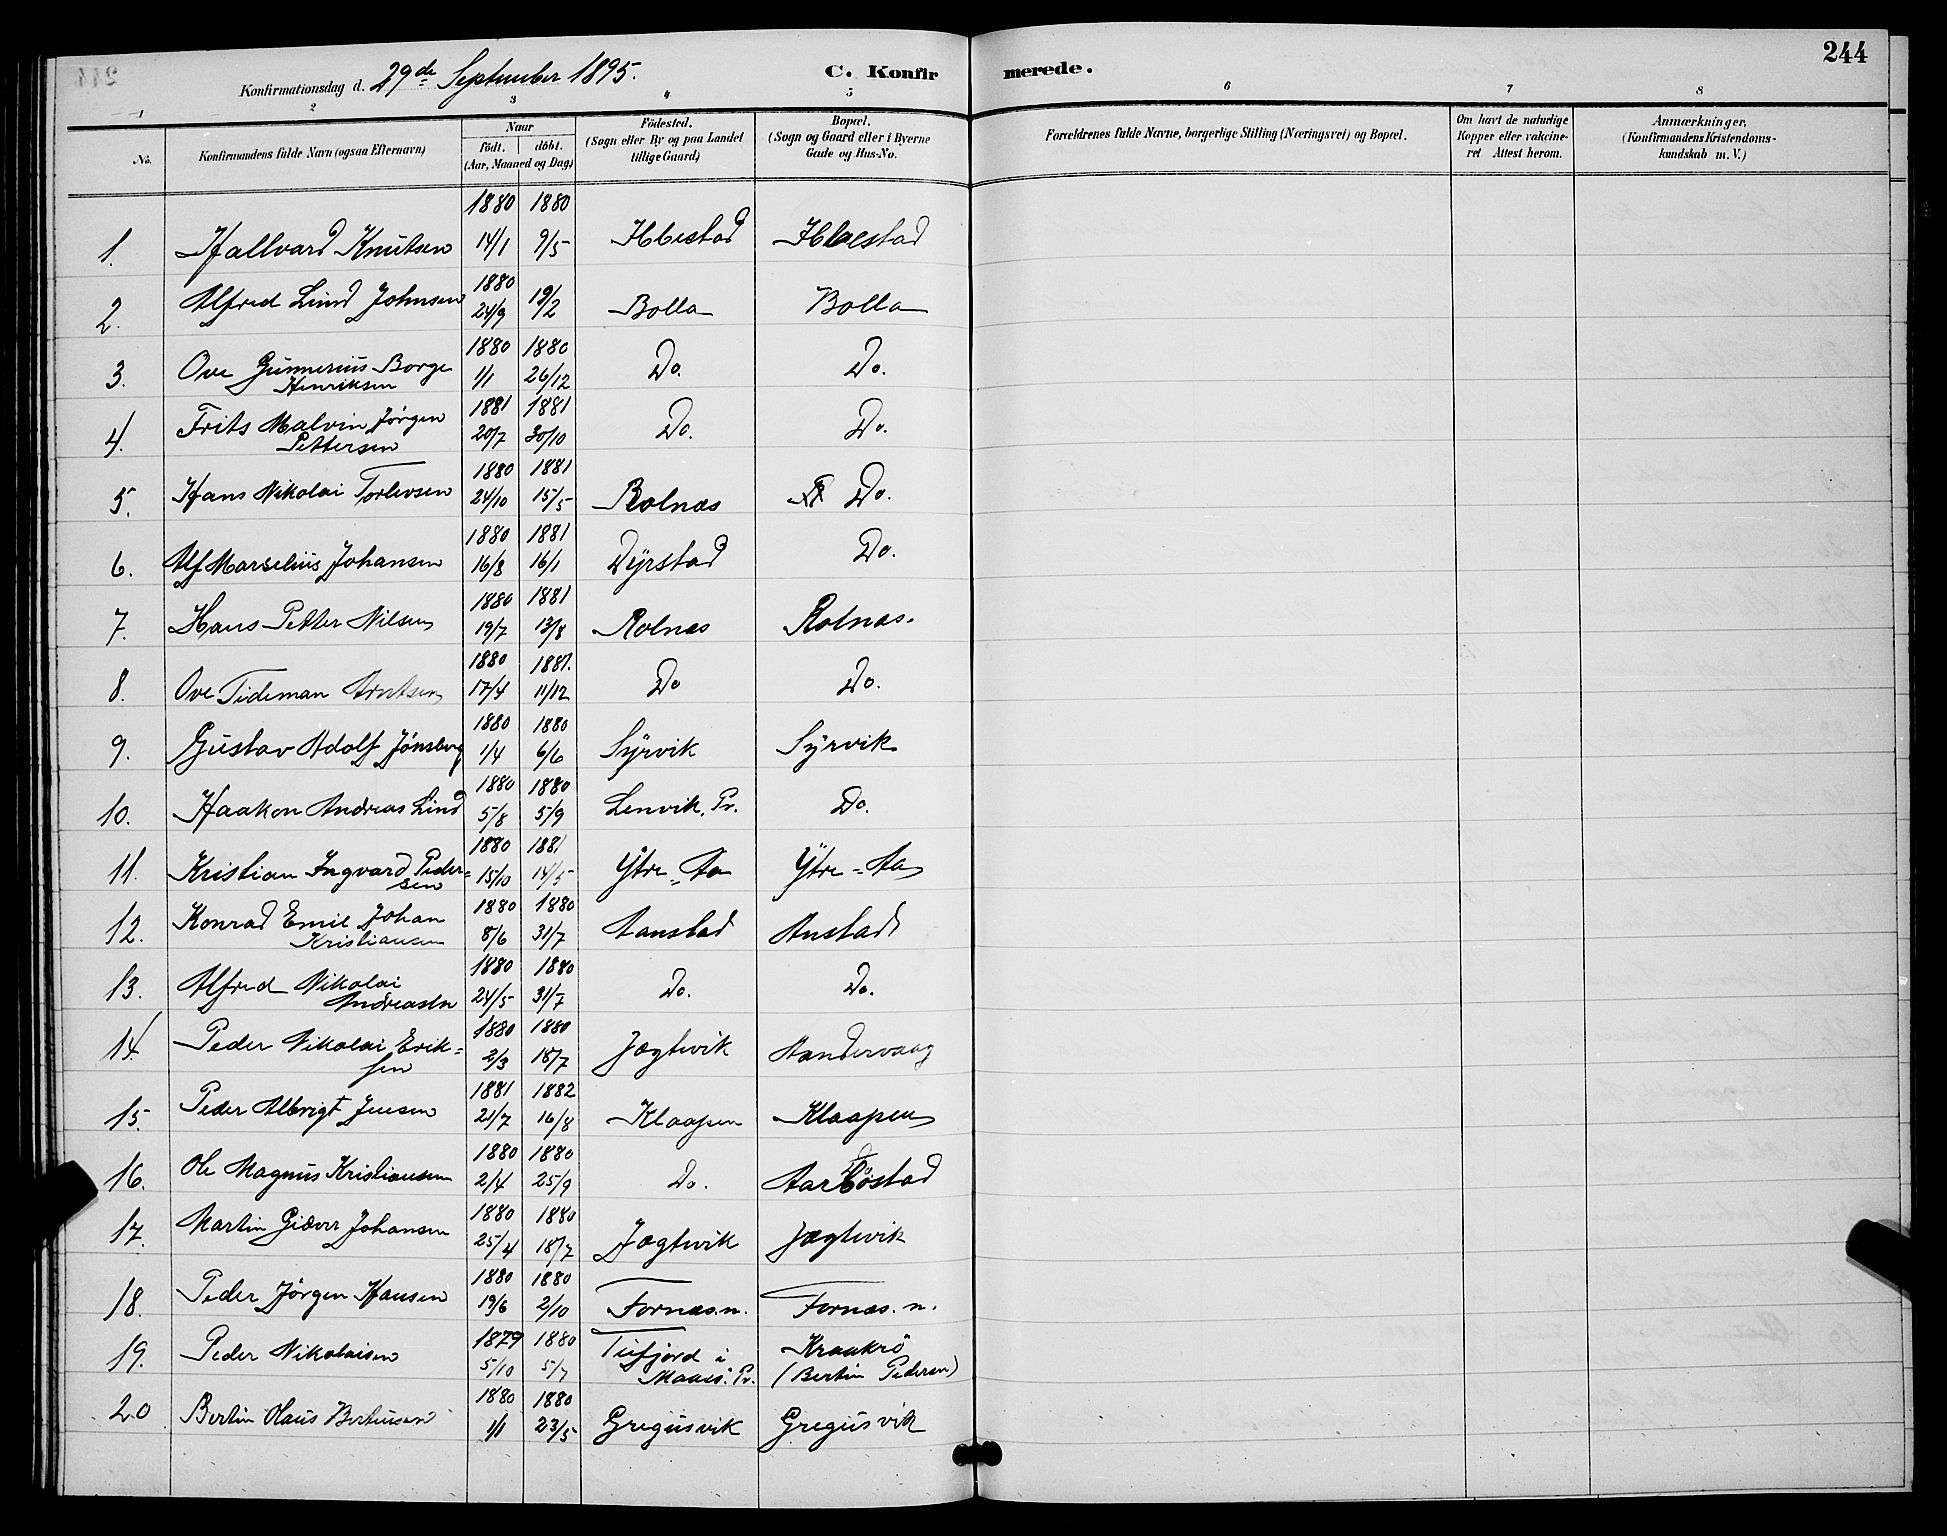 244
Konfirmationsdag d. 29de September 1895.
C. Konfir
merede.
1 2 3 4 5 6 7 8
No.
Konfirmandens fulde Navn (ogsaa Efternavn)
Naar
födt. döbt.
(Aar, Maaned og Dag)
Födested.
(Sogn eller By og paa Landet
tillige Gaard)
Bopæl.
(Sogn og Gaard eller i Byerne
Gade og Hus-No.
Forældrenes fulde Navne, borgerlige Stilling (Næringsvei) og Bopæl.
Om havt de naturlige
Kopper eller vakcine-
ret Attest herom.
Anmærkninger,
(Konfirmandens Kristendoms-
kundskab m. V.)
1880 1880
1. Hallvard Knutsen 14/1 9/5 Ibbestad Ibbestad
1880
2. Alfred Lind Johnsen 24/9 19/2 Bolla Bolla
1880 1880
3. Ove Gunnerius Borge 1/1 26/12 Do. Do.
Henriksen
1881 1881
4. Frits Malvin Jørgen 20/7 30/10 Do. Do.
Pettersen
1880 1881
5. Hans Nikolai Torlevsen 24/10 15/5 Rolnæs Do.
1880 1881
6. Alf Marselius Johansen 16/8 16/1 Dyrstad Do.
1880 1881
7. Hans Petter Nilsen 19/7 13/8 Rolnæs Rolnæs.
1880 1881.
8. Ove Tideman Arntsen 17/4 11/12 Do Do.
1880 1880
9. Gustav Adolf Jönsberg 1/4 6/6 Syrvik Syrvik
1880 1880
10. Haakon Andreas Lind 5/8 5/9 Lenvik, Pr. Do.
1880 1881
11. Kristian Ingvard Peder= 15/10 14/5 Ytre=Aa Ytre=Aa
sen
1880 1880
12. Konrad Emil Johan 8/6 31/7 Aanstad Anstad
Kristiansen
1880 1880
13. Alfred Nikolai 24/5 31/7 Do. Do.
Andreasen
1880 1880
14. Peder Nikolai Erik= 2/3 18/7 Jægtvik Aandervaag
sen
1881 1882
15. Peder Albrigt Jensen 21/7 16/8 Klaapen Klaapen
1880 1880
16. Ole Magnus Kristiansen 2/4 25/9 Do. Aarböstad
1880 1880
17. Martin Giæver Johansen 25/4 18/7 Jægtvik Jægtvik
1880 1880
18. Peder Jörgen Hansen 19/6 2/10 Fornæs. n. Fornæs. n.
1879 1880
19. Peder Nikolaisen 5/10 5/7 Tufjord i Kraakrö
Maasö Pr. (Bertin Pedersen)
1880 1880
20 Bertin Olaus Bertinsen 1/1 23/5 Gregusvik Gregusvik